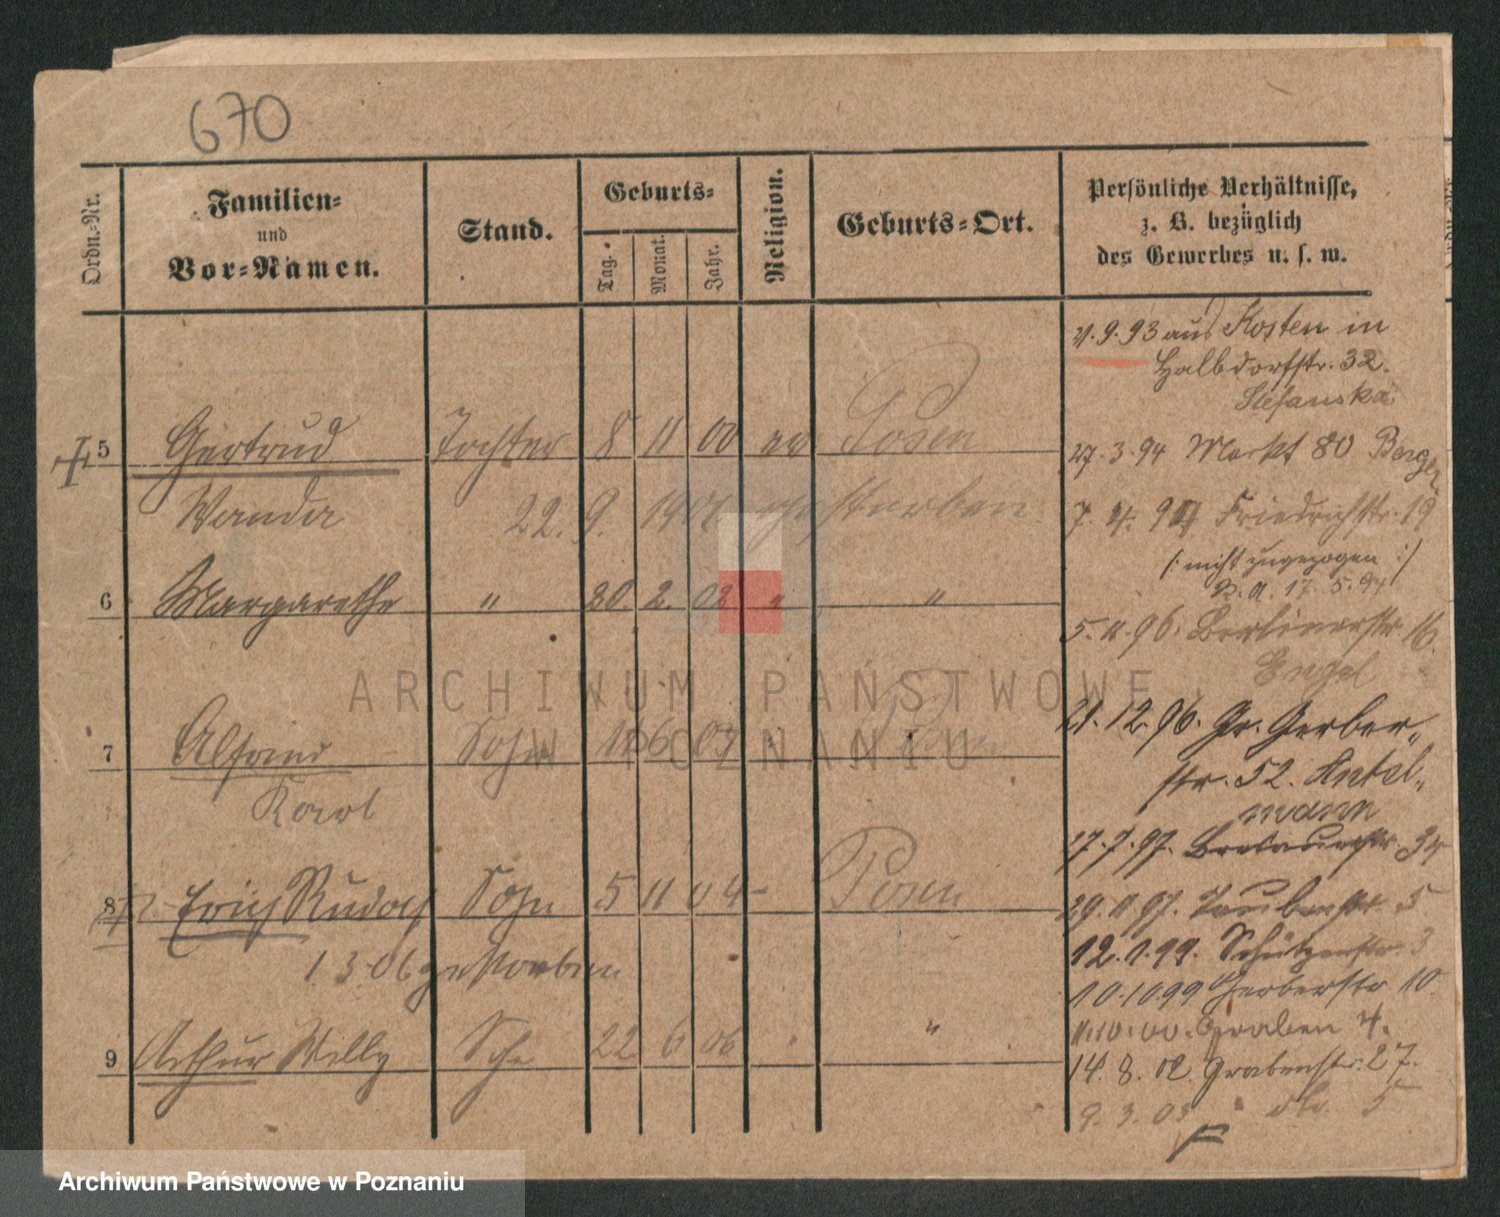 670
Ordn.-Nr.
Familien-
und
Vor-Namen.
Stand.
Geburts-
Tag.
Monat.
Jahr.
Religion.
Geburts-Ort.
Persönliche Verhältnisse,
z. B. bezüglich
des Gewerbes u. s. w.
21.9.93 aus Kosten in
Halbdorfstr. 32.
Stefanska
5 Gertrud Tochter 8 11 00 ev Posen
27.3.94 Markt 80 Berger
Wanda 22. 9. 1901 gestorben.
7. 4. 94 Friedrichstr. 19
(: nicht zugezogen :)
R. A. 17. 5. 94
6 Margarethe " 20. 2. 02 " "
5. 11. 96. Berlinerstr. 16.
Engel
21. 12. 96. Gr. Gerber-
str. 52. Antel-
mann
7 Sohn 6 03
Karl
17. 7. 97. 34
8 Erich Rudolf Sohn 5 11 04 - Posen
29. 11 97. Taubenstr 5
12. 1. 99. Schützenstr. 3
1 3 06 gestorben
10.10 99 Gerberstr 10.
11.10.00. Graben 4.
9 Arthur Willy 22 6 06 "
14. 8. 02. Grabenstr. 27.
9. 3. 03 " 5
ARCHIWUM PAŃSTWOWE
W POZNANIU
Archiwum Państwowe w Poznaniu